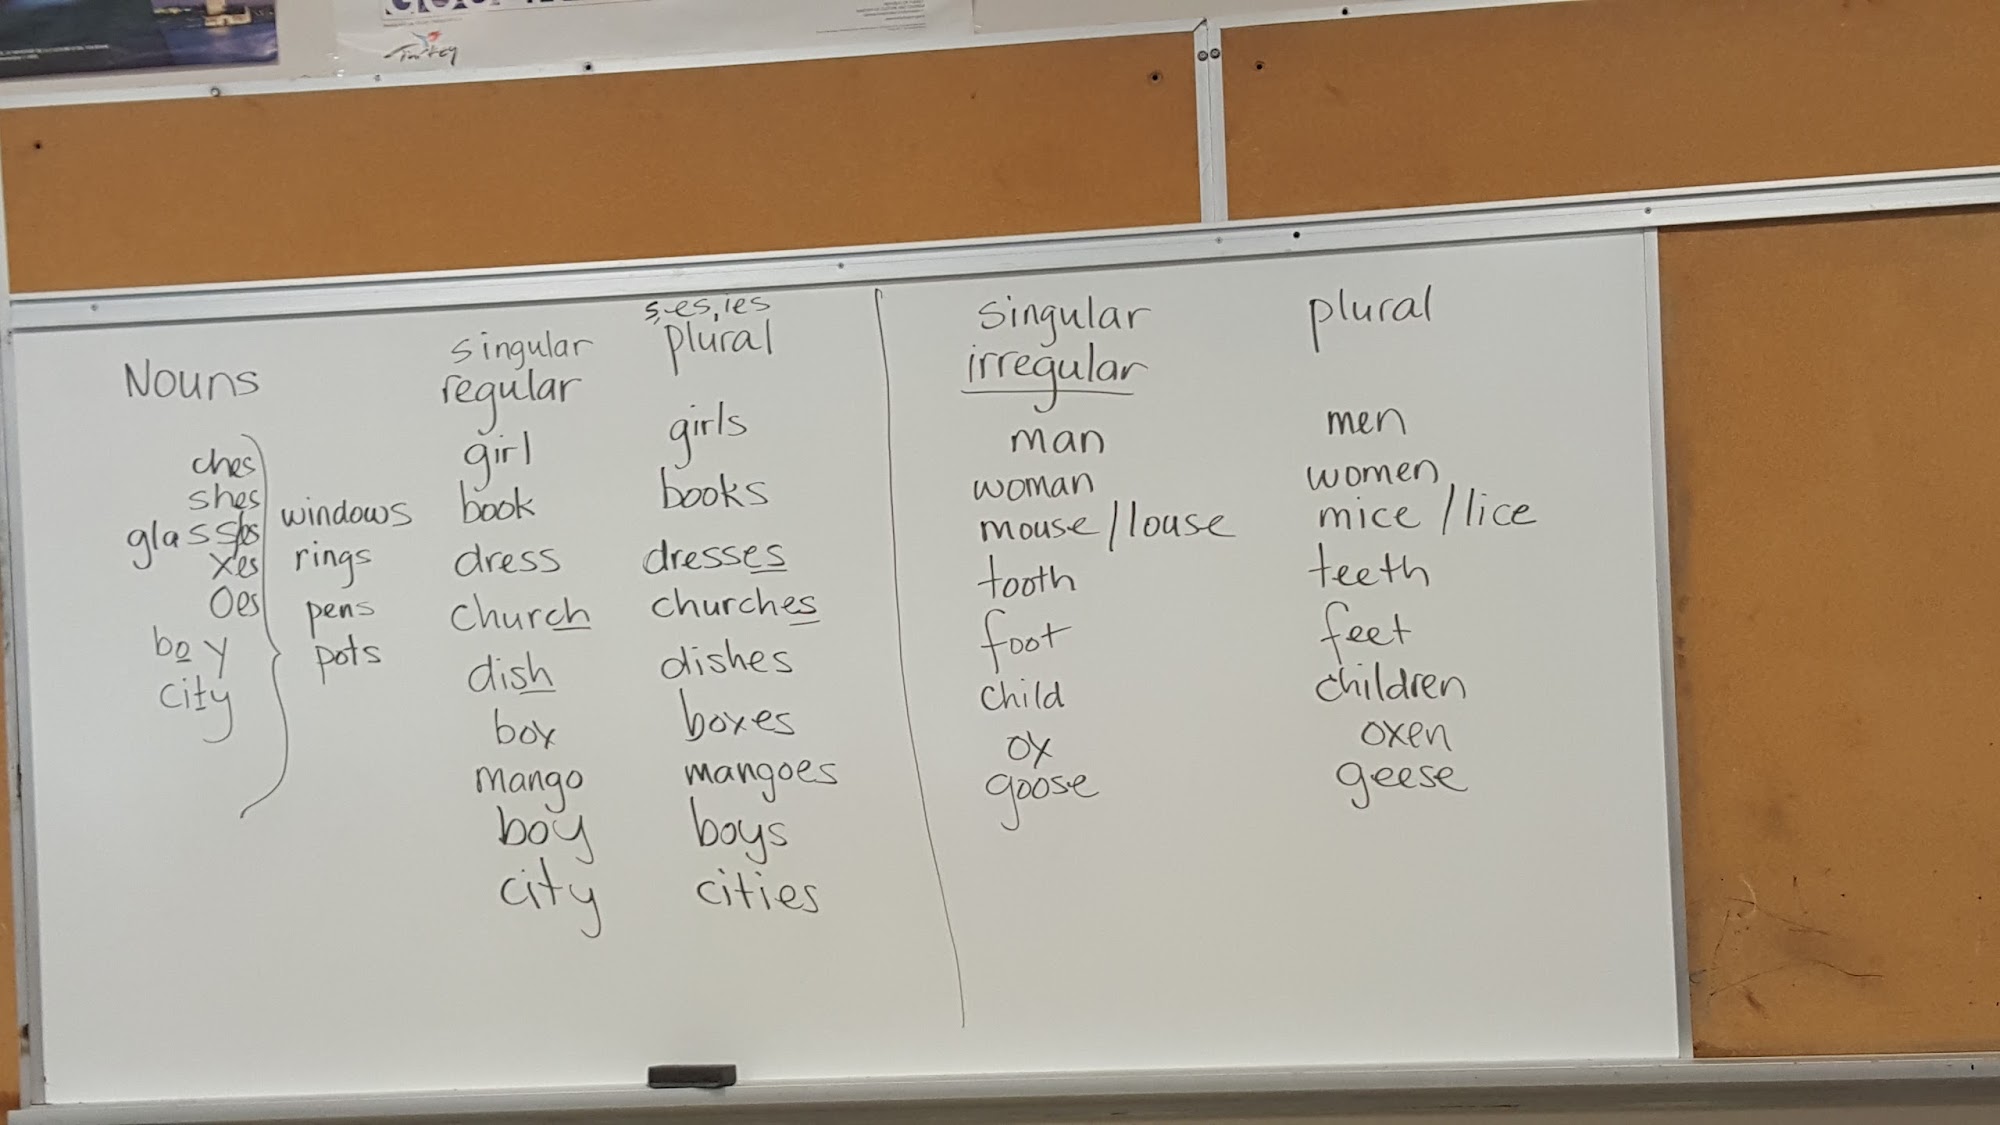 Turkey
Nouns
ches
shes
xes
oes
boy
city
windows
rings
pens
pots
s,-es,ies
singular plural
regular
girl girls
book books
dress dresses
church churches
dish dishes
box boxes
mango mangoes
boy boys
city cities
singular plural
irregular
man men
woman women
mouse/louse mice/lice
tooth teeth
foot feet
child children
ox oxen
goose geese